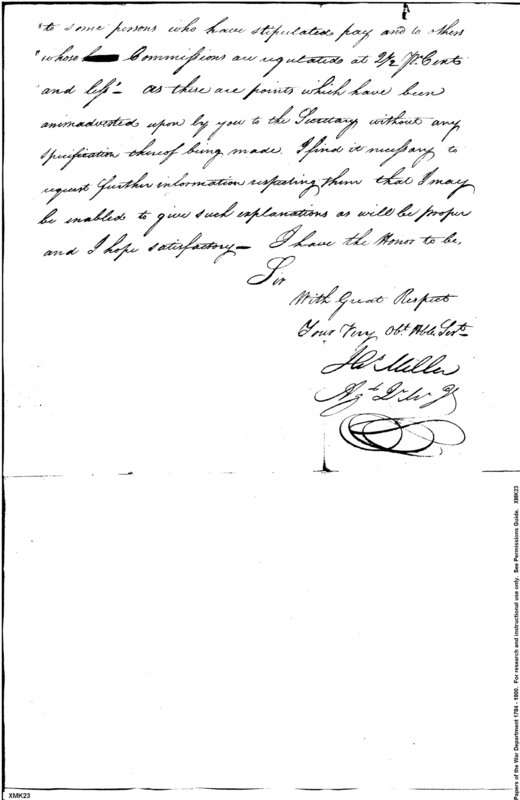 "to some persons who have stipulated pay and to others
"whose Commissions are regulated at 2½ Pr Cent
and less"- as these are points which have been
animadverted upon by you to the Secretary without any
specification thereof being made. I find it necessary to
request further information respecting them that I may
be enabled to give such explanations as will be proper
and I hope satisfactory- I have the Honor to be,
Sir
With Great Respect
Your Very Obt Hble Servt
Jno Miller
Agt
XMK23
Papers of the War Department 1784 - 1800. For research and instructional use only. See Permissions Guide. XMK23